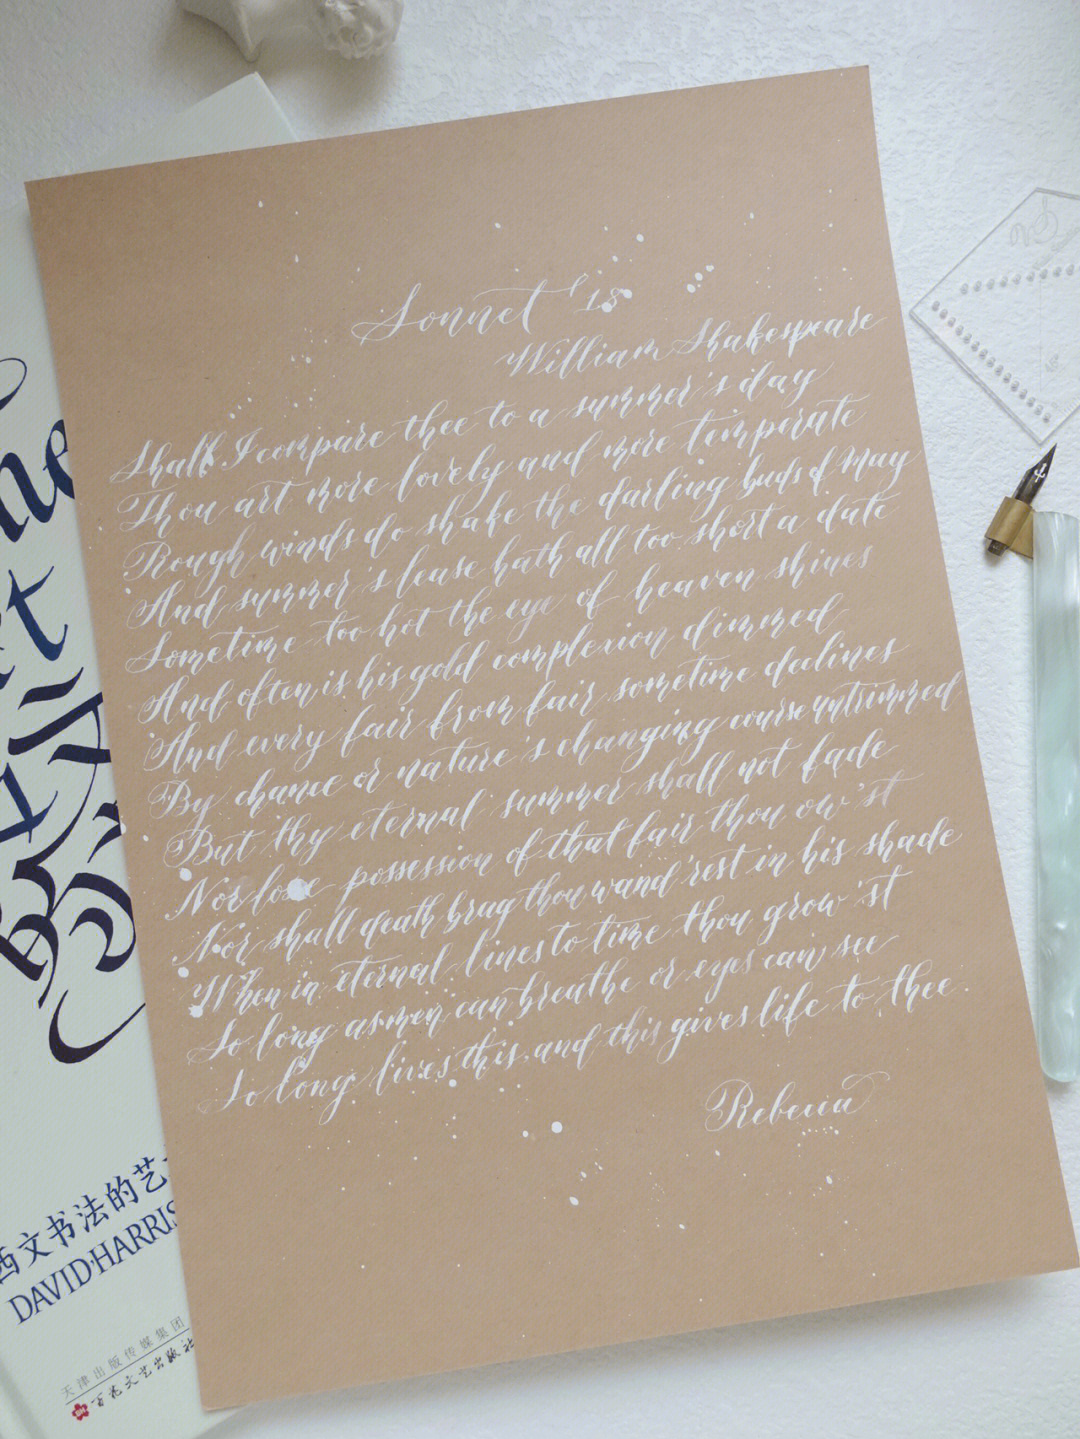 Sonnet 18
William Shakespeare
Shall I compare thee to a summer's day
Thou art more lovely and more temperate
Rough winds do shake the darling buds of May
And summer's lease hath all too short a date
Sometime too hot the eye of heaven shines
And often is his gold complexion dimmed
And every fair from fair sometime declines
By chance or nature's changing course untrimmed
But thy eternal summer shall not fade
Nor lose possession of that fair thou ow'st
Nor shall death brag thou wand'rest in his shade
When in eternal lines to time thou grow'st
So long as men can breathe or eyes can see
So long lives this, and this gives life to thee.
Rebecca
西文书法的艺
DAVID·HARRIS
天津出版传媒集团
百花文艺出版社